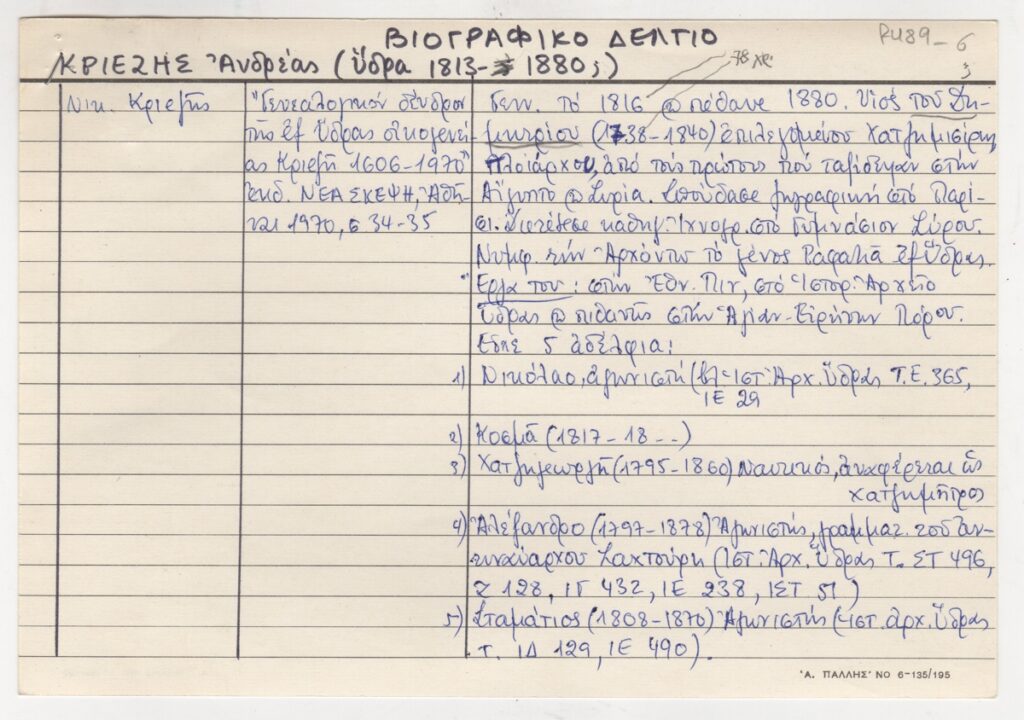 ΒΙΟΓΡΑΦΙΚΟ ΔΕΛΤΙΟ
ΚΡΙΕΖΗΣ Ἀνδρέας (Ὕδρα 1813- 1880;)
Νικ. Κριεζῆς
"Γενεαλογικόν δένδρον
τῆς ἐξ Ὕδρας οἰκογενεί
ας Κριεζῆ 1606-1970"
ἐκδ. ΝΕΑ ΣΚΕΨΗ, Ἀθῆ-
ναι 1970, σ 34-35
Γενν. τό 1816 @ πέθανε 1880. Υἱός τοῦ Δη-
μητρίου (1738-1840) ἐπιλεγομένου Χατζημισίρη,
πλοιάρχου, ἀπό τούς πρώτους πού ταξίδεψαν στήν
Αἴγυπτο @ Συρία. Σπούδασε ζωγραφική στό Παρί-
σι. Διετέλεσε καθηγ. Ἰχνογρ. στό Γυμνάσιον Σύρου.
Νυμφ. τήν Ἀρχόντω τό γένος Ραφαλιᾶ ἐξ Ὕδρας.
Ἔργα του: στήν Ἐθν. Πιν, στό Ἱστορ. Ἀρχεῖο
Ὕδρας @ πιθανῶς στήν Ἁγίαν-Εἰρήνην Πόρου.
Εἶχε 5 ἀδέλφια:
1) Νικόλαο, ἀγωνιστή (βλ Ἱστ. Ἀρχ. Ὕδρας Τ.Ε. 365,
ΙΕ 29
2) Κοσμᾶ (1817-18--)
3) Χατζηγεωργῆ (1795-1860) Ναυτικός, ἀναφέρεται ὡς
χατζημήτρος
4) Ἀλέξανδρο (1797-1878) Ἀγωνιστής, γραμματ. τοῦ ἀν-
τιναύαρχου Σαχτούρη (Ἱστ. Ἀρχ. Ὕδρας Τ. ΣΤ 496,
Ζ 128, ΙΓ 432, ΙΕ 238, ΙΣΤ 51)
5) Σταμάτιος (1808-1870) Ἀγωνιστής (Ἱστ. ἀρχ. Ὕδρας
τ. ΙΔ 129, ΙΕ 490).
'Α. ΠΑΛΛΗΣ' ΝΟ 6-135/195